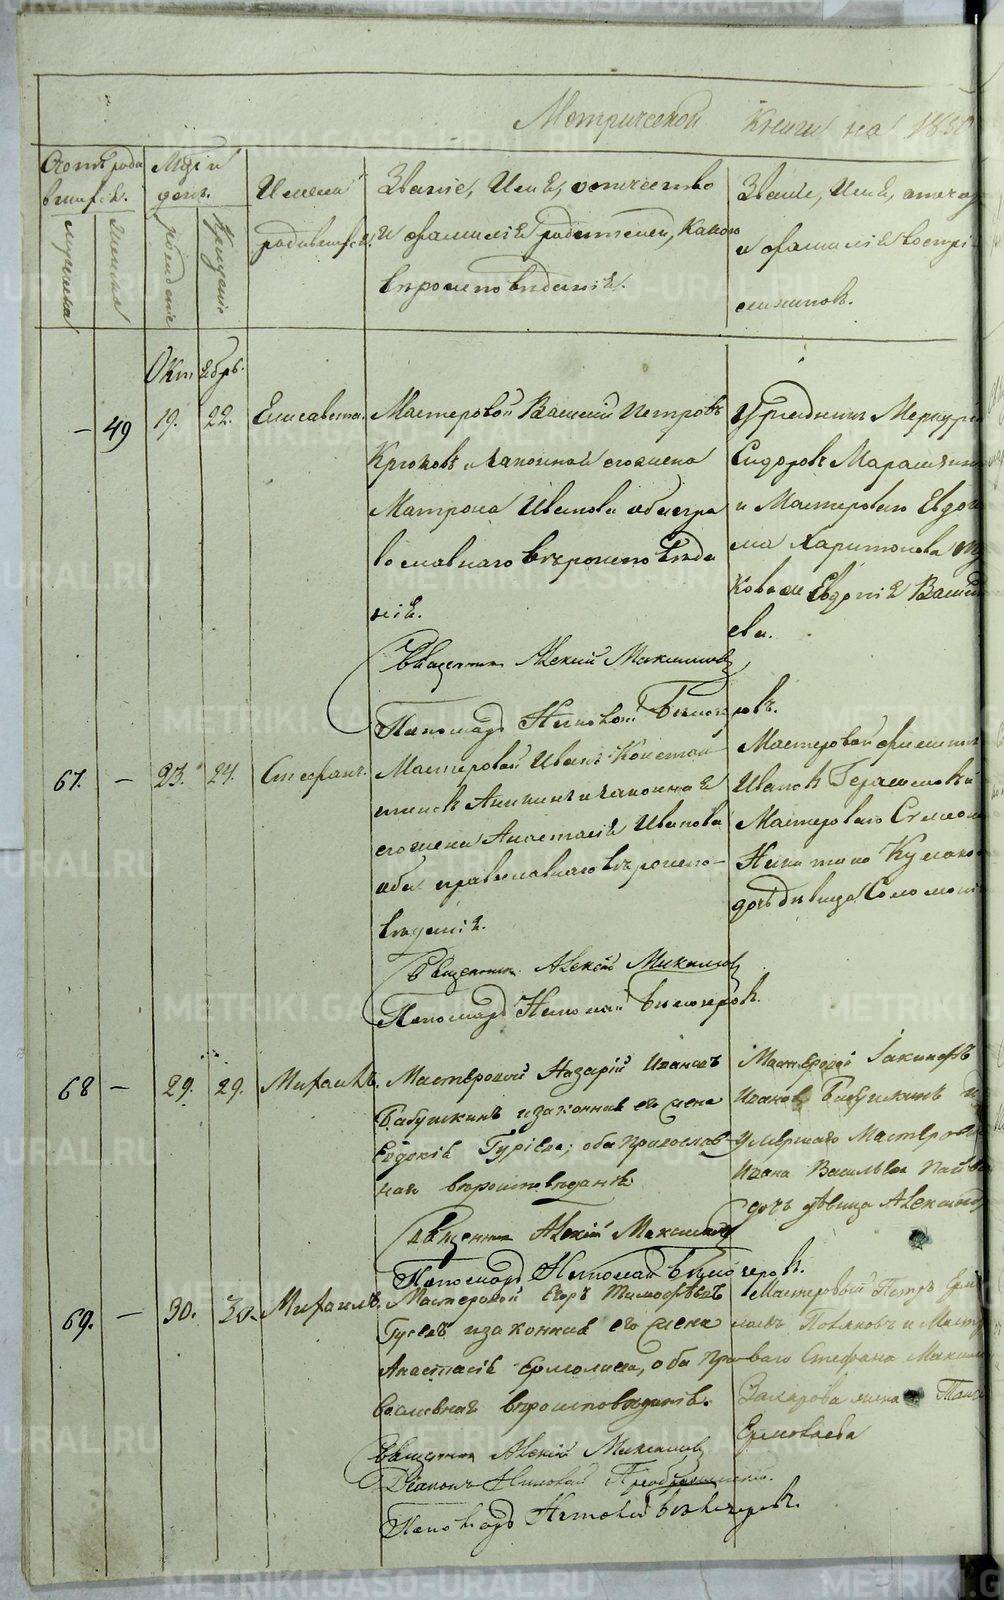 Метрической Книги на 1850
Счотъ родившихся.
мужеска
женска
Мѣс. и день.
рожденіе
крещеніе
Имена родившихся.
Званіе, Имя, отчество
и фамилія родителей, какого
вѣроисповѣданія.
Званіе, Имя, отчес
и фамилія воспрі
емниковъ.
Октябрь.
— 49 19. 22. Елисавета.
Мастеровой Василій Петровъ
Крюковъ и законная его жена
Матрона Иванова оба пра
вославнаго вѣроисповѣда
нія.
Священникъ Алексій Максимовъ
Пономарь Николай Бѣлозеровъ.
Урядникъ Меркур
Сидоровъ
и Мастероваго Евдо
ма Харитонова
Евдокія Васил
ева.
67. — 23. 24. Стефанъ.
Мастеровой Иванъ Констан
тиновъ Аникинъ и законная
его жена Анастасія Иванова
оба православнаго вѣроиспо-
вѣданія.
Священникъ Алексій Максимовъ
Пономарь Николай Бѣлозеровъ.
Мастеровой
Иванъ Герасимовъ и
Мастероваго Семена
Никитина
дочь дѣвица Соломон
68 — 29. 29. Михаилъ.
Мастеровой Назарій Ивановъ
Бабушкинъ и законная его жена
Евдокія Гурьева; оба православ-
наго вѣроисповѣданія
Священникъ Алексій Максимовъ
Пономарь Николай Бѣлозеровъ.
Мастеровой Іакинфъ
Ивановъ Бабушкинъ и
Умершаго Мастерова
Ивана Васильева
дочь дѣвица Александ
69. — 30. 30. Михаилъ.
Мастеровой Егоръ Тимофѣевъ
Гусевъ и законная его жена
Анастасія Ермолаева, оба пра-
вославнаго вѣроисповѣданія.
Священникъ Алексій Максимовъ
Діаконъ Николай Преображенскій.
Пономарь Николай Бѣлозеровъ.
Мастеровый Петръ Ермо
лаевъ и Масте
роваго Стефана Максим
Захарова жена
Ермолаева